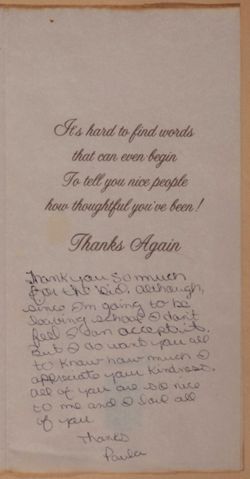 It's hard to find words
that can even begin
To tell you nice people
how thoughtful you've been!
Thanks Again
Thank you so much
for the bid, although,
since I'm going to be
leaving school I don't
feel I can accept it.
But I do want you all
to know how much I
appreciate your kindness.
All of you are so nice
to me and I love all
of you
Thanks
Paula